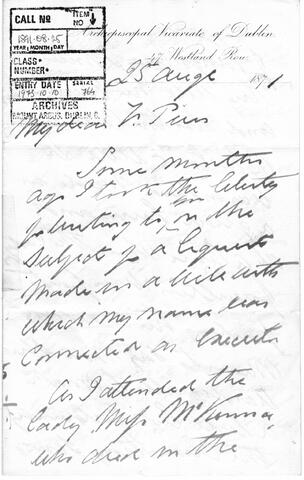 CALL NO
ITEM NO
1891-08-25
YEAR, MONTH, DAY
CLASS•
NUMBER•
ENTRY DATE
SERIAL
1975-10-10
764
ARCHIVES
MOUNT ARGUS, DUBLIN, 6.
Archiepiscopal Vicariate of Dublin
47 Westland Row
25 Augt 1891
My dear F. Pius
Some months
ago I took the liberty
of writing to you on the
subject of a bequest
made in a will with
which my name was
connected as Executor
As I attended the
lady Miss McKenna,
who died in the